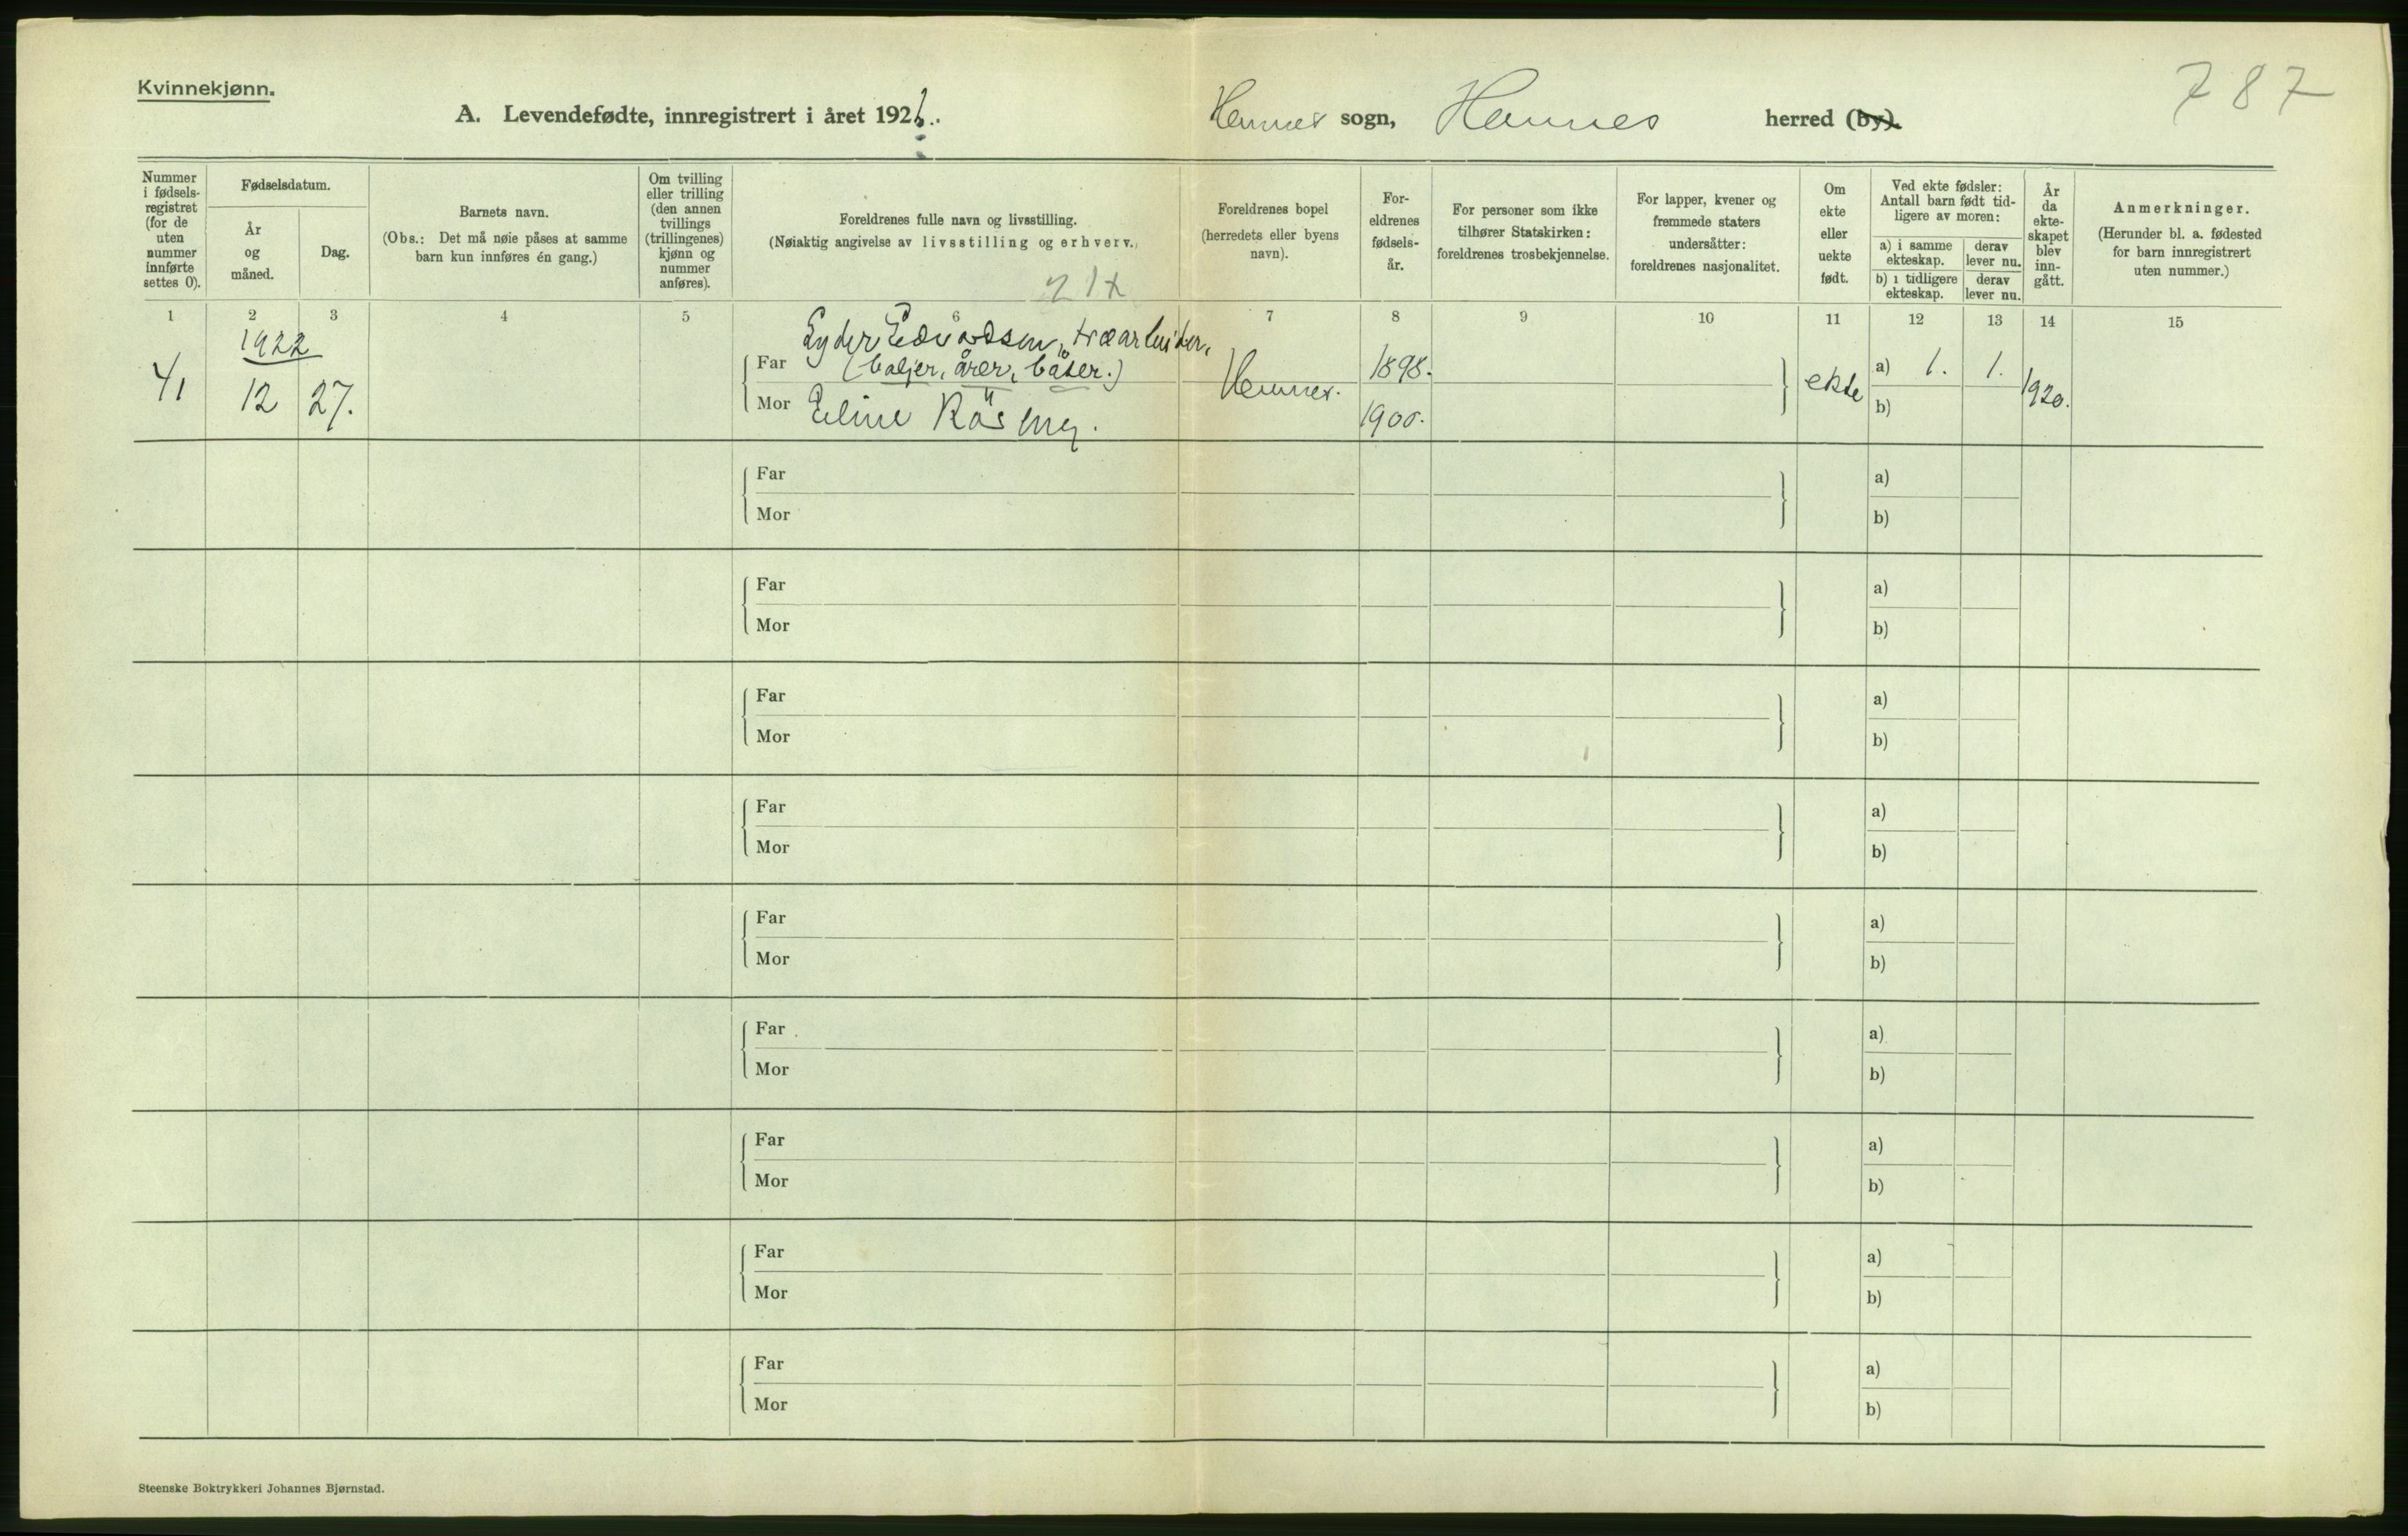 Kvinnekjønn.
A. Levendefødte, innregistrert i året 1926.
Hemnes sogn, Hemnes herred (by).
787
Nummer i fødselsregistret (for de uten nummer innførte settes 0).
Fødselsdatum.
År og måned.
Dag.
Barnets navn.
(Obs.: Det må nøie påses at samme barn kun innføres én gang.)
Om tvilling eller trilling (den annen tvillings (trillingenes) kjønn og nummer anføres).
Foreldrenes fulle navn og livsstilling.
(Nøiaktig angivelse av livsstilling og erhverv.)
Foreldrenes bopel (herredets eller byens navn).
Foreldrenes fødselsår.
For personer som ikke tilhører Statskirken: foreldrenes trosbekjennelse.
For lapper, kvener og fremmede staters undersåtter: foreldrenes nasjonalitet.
Om ekte eller uekte født.
Ved ekte fødsler: Antall barn født tidligere av moren:
a) i samme ekteskap.
derav lever nu.
b) i tidligere ekteskap.
derav lever nu.
År da ekteskapet blev inngått.
Anmerkninger.
(Herunder bl. a. fødested for barn innregistrert uten nummer.)
1 2 3 4 5 6 7 8 9 10 11 12 13 14 15
1922
41 12 27.
Lyder Edvardsen, træarbeider,
Far (baljer, årer, båter.) Hemnes. 1898. ekte a) 1. 1. 1920.
Mor Eline 1900. b)
Far a)
Mor b)
Far a)
Mor b)
Far a)
Mor b)
Far a)
Mor b)
Far a)
Mor b)
Far a)
Mor b)
Far a)
Mor b)
Far a)
Mor b)
Far a)
Mor b)
Steenske Boktrykkeri Johannes Bjørnstad.